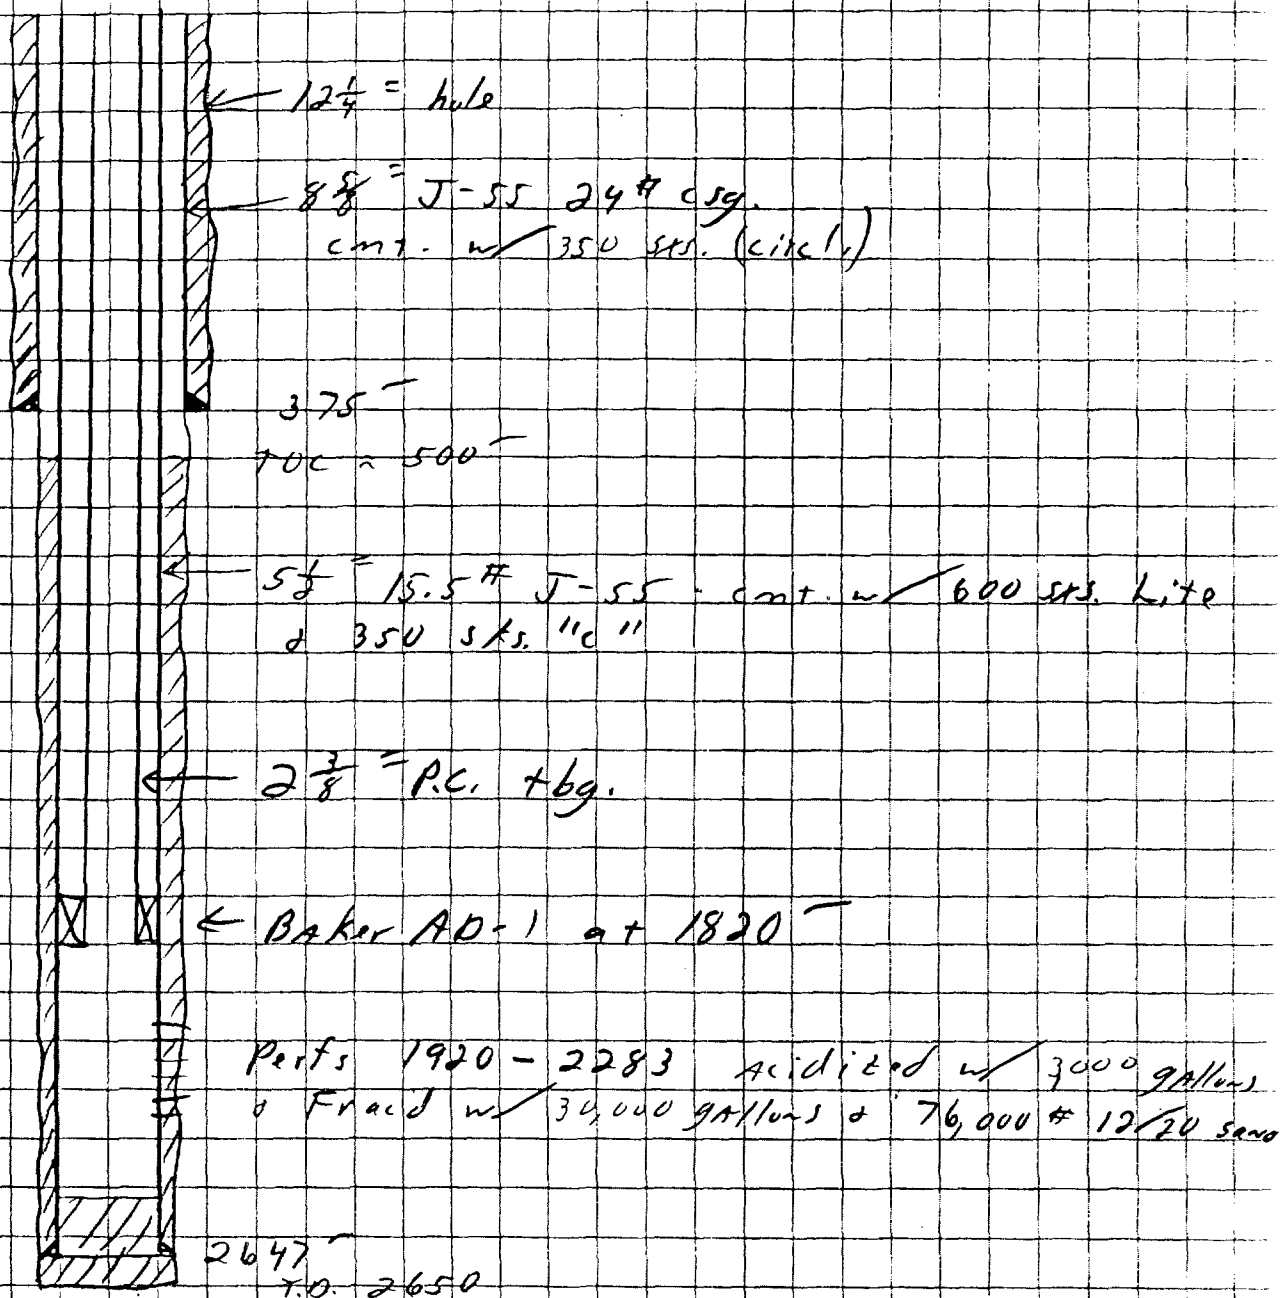 12 1/4" hole
8 5/8" J-55 24# csg.
cmt. w/ 350 sxs. (circ'.)
375'
TOC ≈ 500'
5 1/2" 15.5# J-55 - cmt. w/ 600 sxs. Lite
& 350 sks. "C"
2 3/8" P.C. tbg.
Baker AD-1 at 1820'
Perfs 1920 - 2283 Acidized w/ 3,000 gallons
& Frac'd w/ 30,000 gallons & 76,000 # 12/20 sand
2647'
T.D. 2650